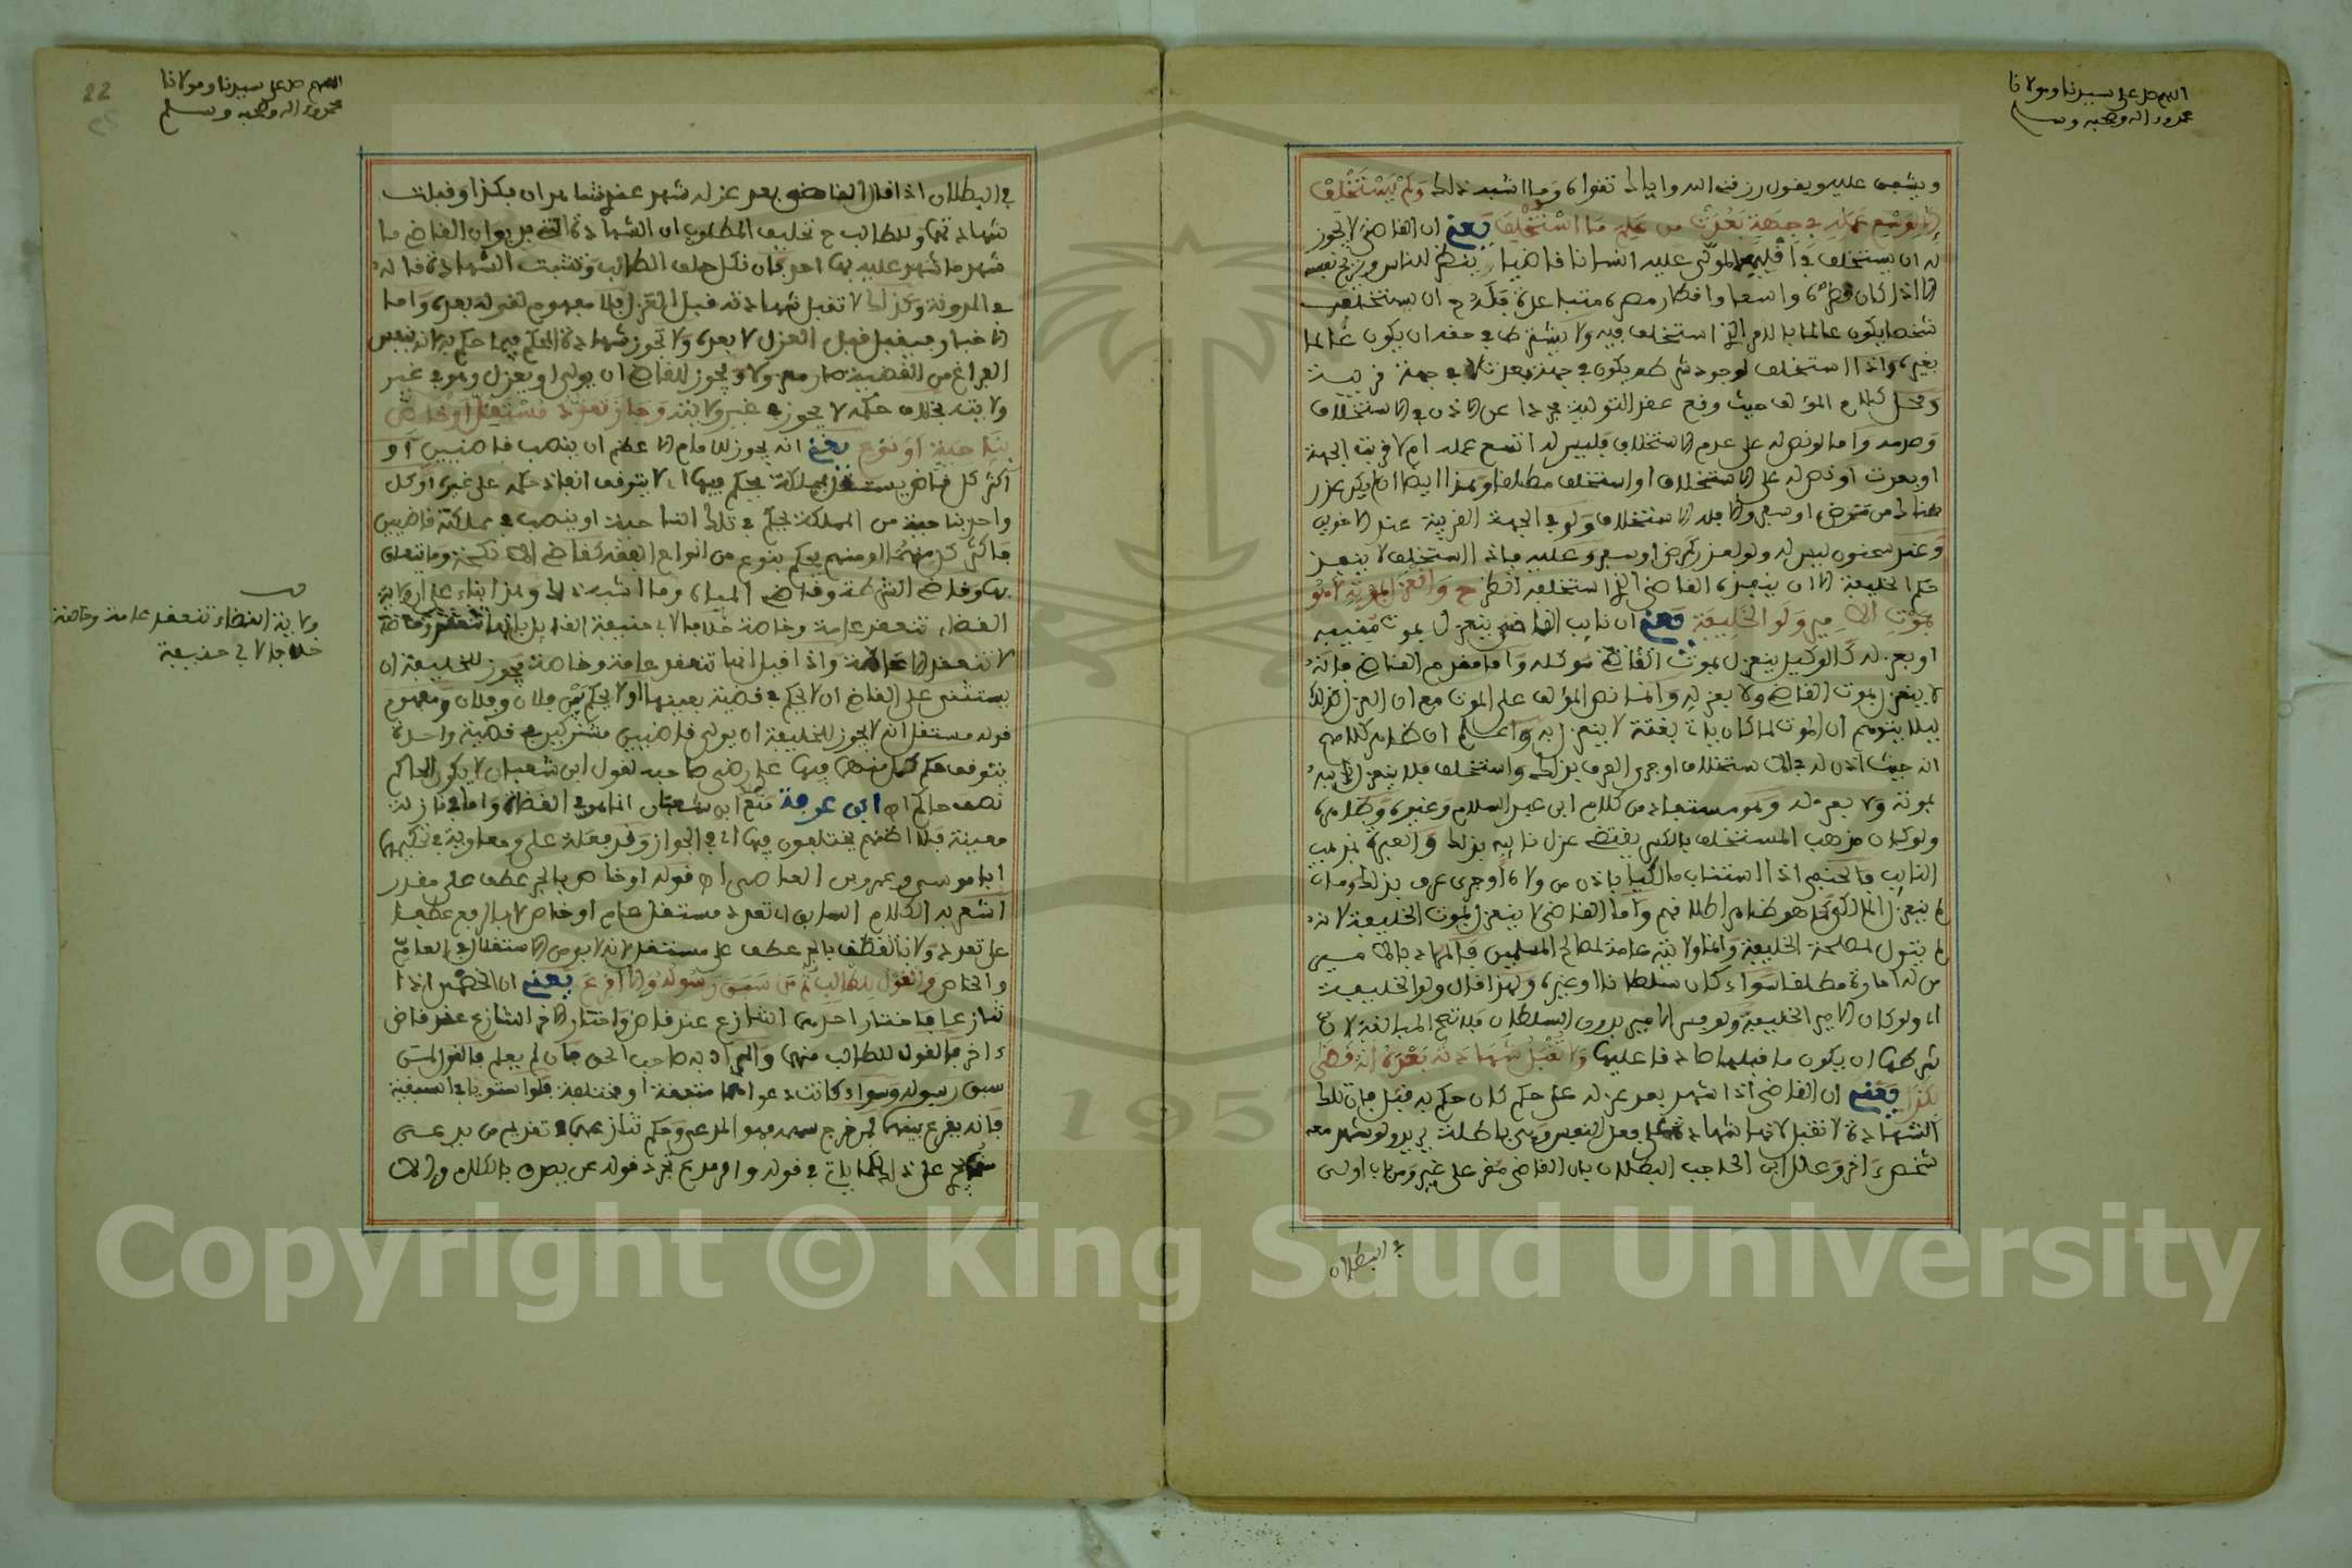 اللهم صل على سيدنا ومولانا
محمد وءاله وصحبه وسلم
ويشفق عليه ويقول رزقنا الله واياك تقواه وما اشبه ذلك ولم يستخلف
الا لوسع عمله في جهة بعدت من علم ما استخلف يعني ان القاضي لا يجوز
له ان يستخلف في اقليمه المولى عليه انسانا قاضيا ينظر للناس ويريح نفسه
الا اذا كان قطره واسعا واقطار مصره متباعدة فله ح ان يستخلف
شخصا يكون عالما بالامر الذي استخلف فيه ولا يشترط في حقه ان يكون عالما
بغيره واذا استخلف لوجود شرطه يكون في جهة بعدت لا في جهة قريبة
ومحل كلام المؤلف حيث وقع عقد التولية مجردا عن الاذن في الاستخلاف
وعدمه واما لو نص له على عدم الاستخلاف فليس له اتسع عمله ام لا قربت الجهة
او بعدت او نص له على الاستخلاف استخلف مطلقا وهذا ايضا ان لم يكن عذر
هناك من مرض او سفر والا فله الاستخلاف ولو في الجهة القريبة عند الاخوين
وعند سحنون ليس له ولو لعذر كمرض او سفر وعليه فاذا استخلف لا ينفذ
حكم الخليفة الا ان ينفذه القاضي الذي استخلفه انظر ح وانعزل بموته لا هو
بموت الامير ولو الخليفة يعني ان نايب القاضي ينعزل بموت منيبه
او بعزله كالوكيل ينعزل بموت موكله واما مقدم القاضي فانه
لا ينعزل بموت القاضي ولا بعزله وانما نص المؤلف على الموت مع ان العزل كذلك
ليلا يتوهم ان الموت لما كان ياتي بغتة لا ينعزل به واعلم ان ظاهر كلامهم
انه حيث اذن له في الاستخلاف او جرى العرف بذلك واستخلف فلا ينعزل نايبه
بموته ولا بعزله وهو مستفاد من كلام ابن عبد السلام وغيره وظاهره
ولو كان مذهب المستخلف بالكسر يقتضي عزل نايبه بذلك والعبرة بمذهب
النايب فالحنفي اذا استناب مالكيا باذن من ولاه او جرى عرف بذلك ومات
لم ينعزل المالكي كما هو ظاهر اطلاقهم واما القاضي لا ينعزل بموت الخليفة لانه
لم يتول لمصلحة الخليفة وانما ولايته عامة لمصالح المسلمين فالمراد بالامير
من له امارة مطلقا سواء كان سلطانا او غيره ولهذا قال ولو الخليفة
اي ولو كان الامير الخليفة ولو فسر الامير بدون السلطان فلا تصح المبالغة لان
شرطها ان يكون ما قبلها صادقا عليها ولا تقبل شهادته بعده انه قضى
بكذا يعني ان القاضي اذا شهد بعد عزله على حكم كان حكم به قبل فان تلك
الشهادة لا تقبل لانها شهادة على فعل النفس وهي باطلة يريد ولو شهد معه
شخص ءاخر وعلل ابن الحاجب البطلان بان القاضي مقر على غيره ومن باب اولى
في البطلان
اللهم صل على سيدنا ومولانا
محمد وءاله وصحبه وسلم
22
في البطلان اذا قال القاضي بعد عزله شهد عندي شاهدان بكذا وقبلت
شهادتهما وللطالب ح تحليف المطلوب ان الشهادة التي بديوان القاضي ما
شهد ما شهد عليه بها احد فان نكل حلف الطالب وتثبت الشهادة قاله
في المدونة وكذلك لا تقبل شهادته قبل العزل فلا مفهوم لقوله بعده واما
الاخبار فيقبل قبل العزل لا بعده ولا تجوز شهادة المحكم فيما حكم به لانه بنفس
الفراغ من القضية صار معزولا ولا يجوز للقاضي ان يولي او يعزل وهو في غير
ولايته بخلاف حكمه لا يجوز في غير ولايته وجاز تعدد مستقل او خاص
بناحية او نوع يعني انه يجوز للامام الاعظم ان ينصب قاضيين او
اكثر كل قاض يستقل بمملكة يحكم فيها لا يتوقف انفاذ حكمه على غيره او كل
واحد بناحية من المملكة يحكم في تلك الناحية او ينصب في مملكته قاضيين
فاكثر كل منهما او منهم يحكم بنوع من انواع الفقه كقاضي الانكحة وما يتعلق
بها وقاضي الشرطة وقاضي المياه وما اشبه ذلك وهذا بناء على ان ولاية
القضاء تنعقد عامة وخاصة خلافا لابي حنيفة القايل بانها
لا تنعقد الا عامة واذا قيل انها تنعقد عامة وخاصة يجوز للخليفة ان
يستثني على القاضي ان لا يحكم في قضية بعينها او لا يحكم بين فلان وفلان ومفهوم
قوله مستقل انه لا يجوز للخليفة ان يولي قاضيين مشتركين في قضية واحدة
يتوقف حكم كل منهما فيها على رضى صاحبه لقول ابن شعبان لا يكون الحاكم
نصف حاكم اه ابن عرفة منع ابن شعبان انما هو في القضاة واما في نازلة
معينة فلا اظنهم يختلفون فيها اي في الجواز وقد فعله علي ومعاوية في تحكيمهما
ابا موسى وعمرو بن العاصي اه قوله او خاص بالجر عطف على مقدر
اشعر به الكلام السابق اي تعدد مستقل عام او خاص لا بالرفع عطفا
على تعدد ولا بالجر عطف على مستقل لانه لا بد من الاستقلال في العام
والخاص والقول للطالب ثم من سبق رسوله والا اقرع يعني ان الخصمين اذا
تنازعا فاختار احدهما التنازع عند قاض واختار الاخر التنازع عند قاض
ءاخر فالقول للطالب منهما والمراد به صاحب الحق فان لم يعلم فالقول لمن
سبق رسوله وسواء كانت دعواهما متفقة او مختلفة فلو استويا في السبقية
فانه يقرع بينهما فمن خرج سهمه فهو المدعي وحكم تنازعهما في تقديم من يدعي
على ذلك كما ياتي في قوله وامر مدع تجرد قوله عن مصدق بالكلام والا
ولاية القضاء تنعقد عامة وخاصة
خلافا لابي حنيفة
Copyright © King Saud University
1957